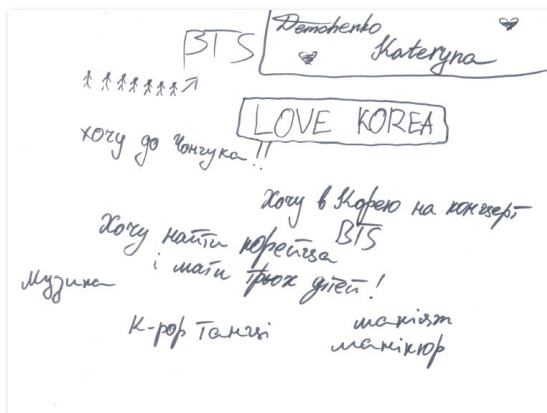 Demchenko
BTS
Kateryna
LOVE KOREA
хочу до Чонгука!!
Хочу в Корею на концерт
BTS
Хочу найти корейца
і мати трьох дітей!
Музика
K-pop Танці
макіяж
манікюр